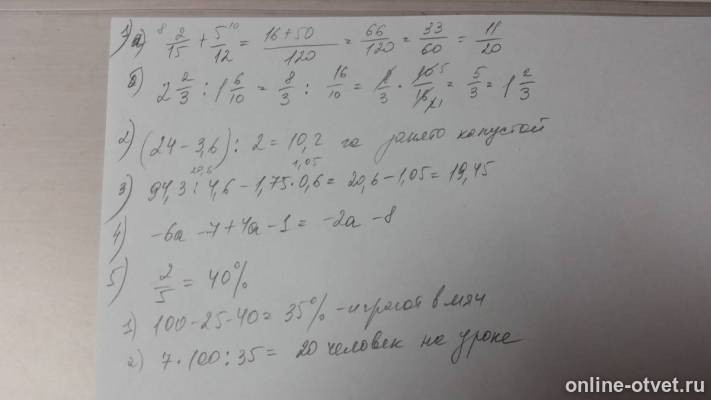 1) а) ⁸ 2/15 + 5/12 ¹⁰ = (16+50)/120 = 66/120 = 33/60 = 11/20
б) 2 2/3 : 1 6/10 = 8/3 : 16/10 = 8/3 · 10 5/16 2 1 = 5/3 = 1 2/3
2) (24 - 3,6) : 2 = 10,2 га занято капустой
20,6 1,05
3) 94,3 : 4,6 - 1,75 · 0,6 = 20,6 - 1,05 = 19,45
4) -6a - 7 + 4a - 1 = -2a - 8
5) 2/5 = 40%
1) 100 - 25 - 40 = 35% - играют в мяч
2) 7 · 100 : 35 = 20 человек на уроке
online-otvet.ru